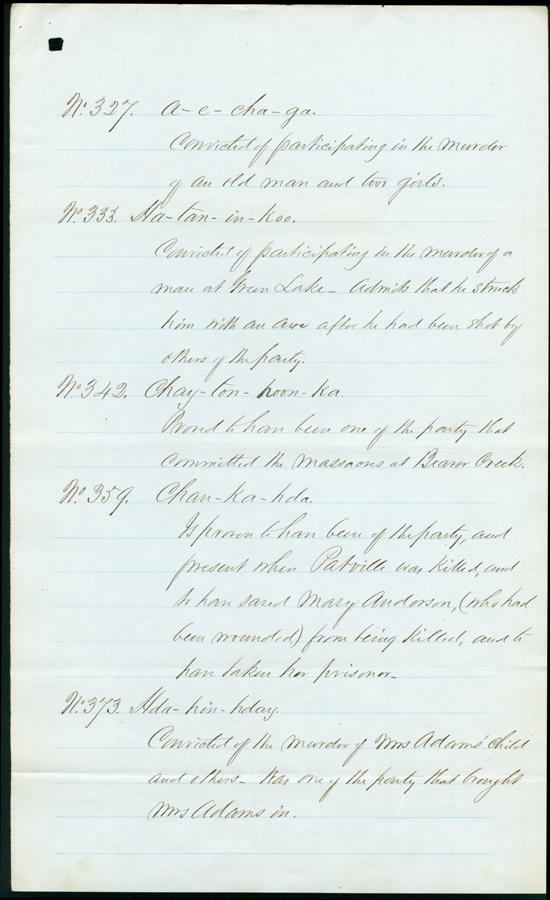 No. 327. A-e-cha-ga.
Convicted of participating in the murder
of an old man and two girls.
No. 333. Ha-tan-in-koo.
Convicted of participating in the murder of a
man at Green Lake - Admits that he struck
him with an axe after he had been shot by
others of the party.
No. 342. Chay-ton-hoon-ka.
Proved to have been one of the party that
committed the massacres at Beaver Creek.
No. 359. Chan-ka-hda.
Is proven to have been of the party, and
present when Patville was killed, and
to have saved Mary Anderson, (who had
been wounded) from being killed, and to
have taken her prisoner-
No. 373. Hda-hin-hday.
Convicted of the murder of Mrs Adams' child
and others - Was one of the party that brought
Mrs Adams in.